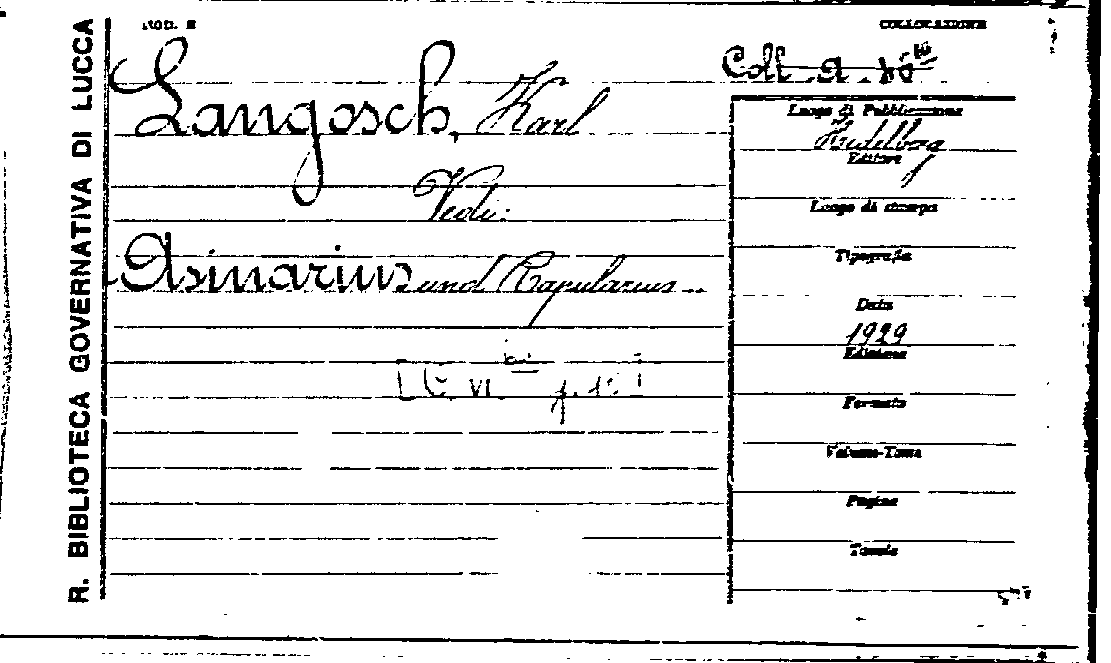 R. BIBLIOTECA GOVERNATIVA DI LUCCA
MOD. E
COLLOCAZIONE
Coll. A.
Langosch, Karl
Vedi:
Asinarius und Rapularius ..
Luogo di Pubblicazione
Heidelberg
Editore
Luogo di stampa
Tipografia
Data
1929
Edizione
Formato
Volume-Tomo
Pagine
Tavole